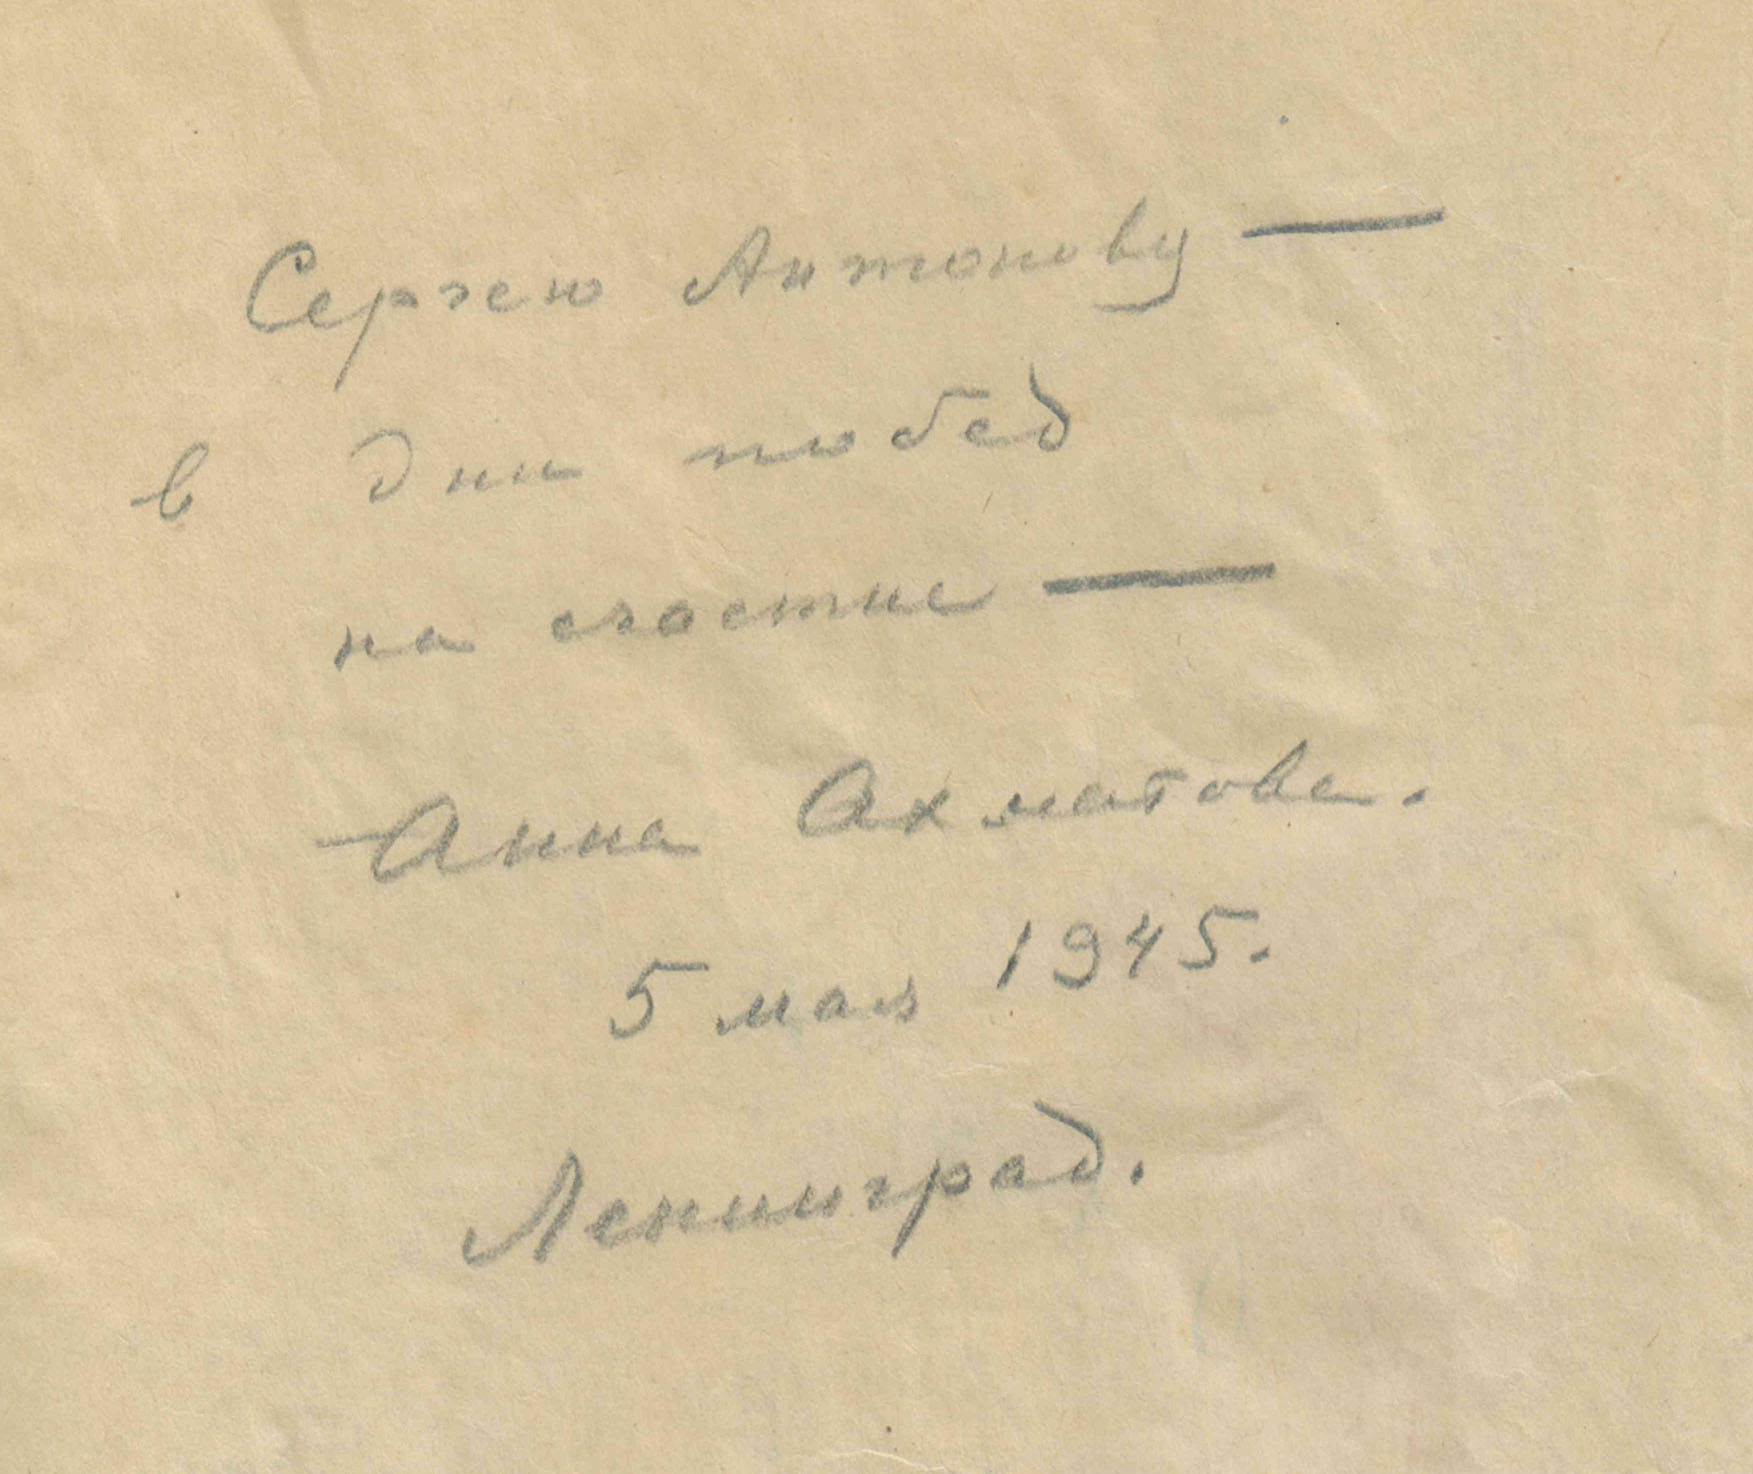 Сергею Антонову —
в дни побед
на счастие —
Анна Ахматова.
5 мая 1945.
Ленинград.